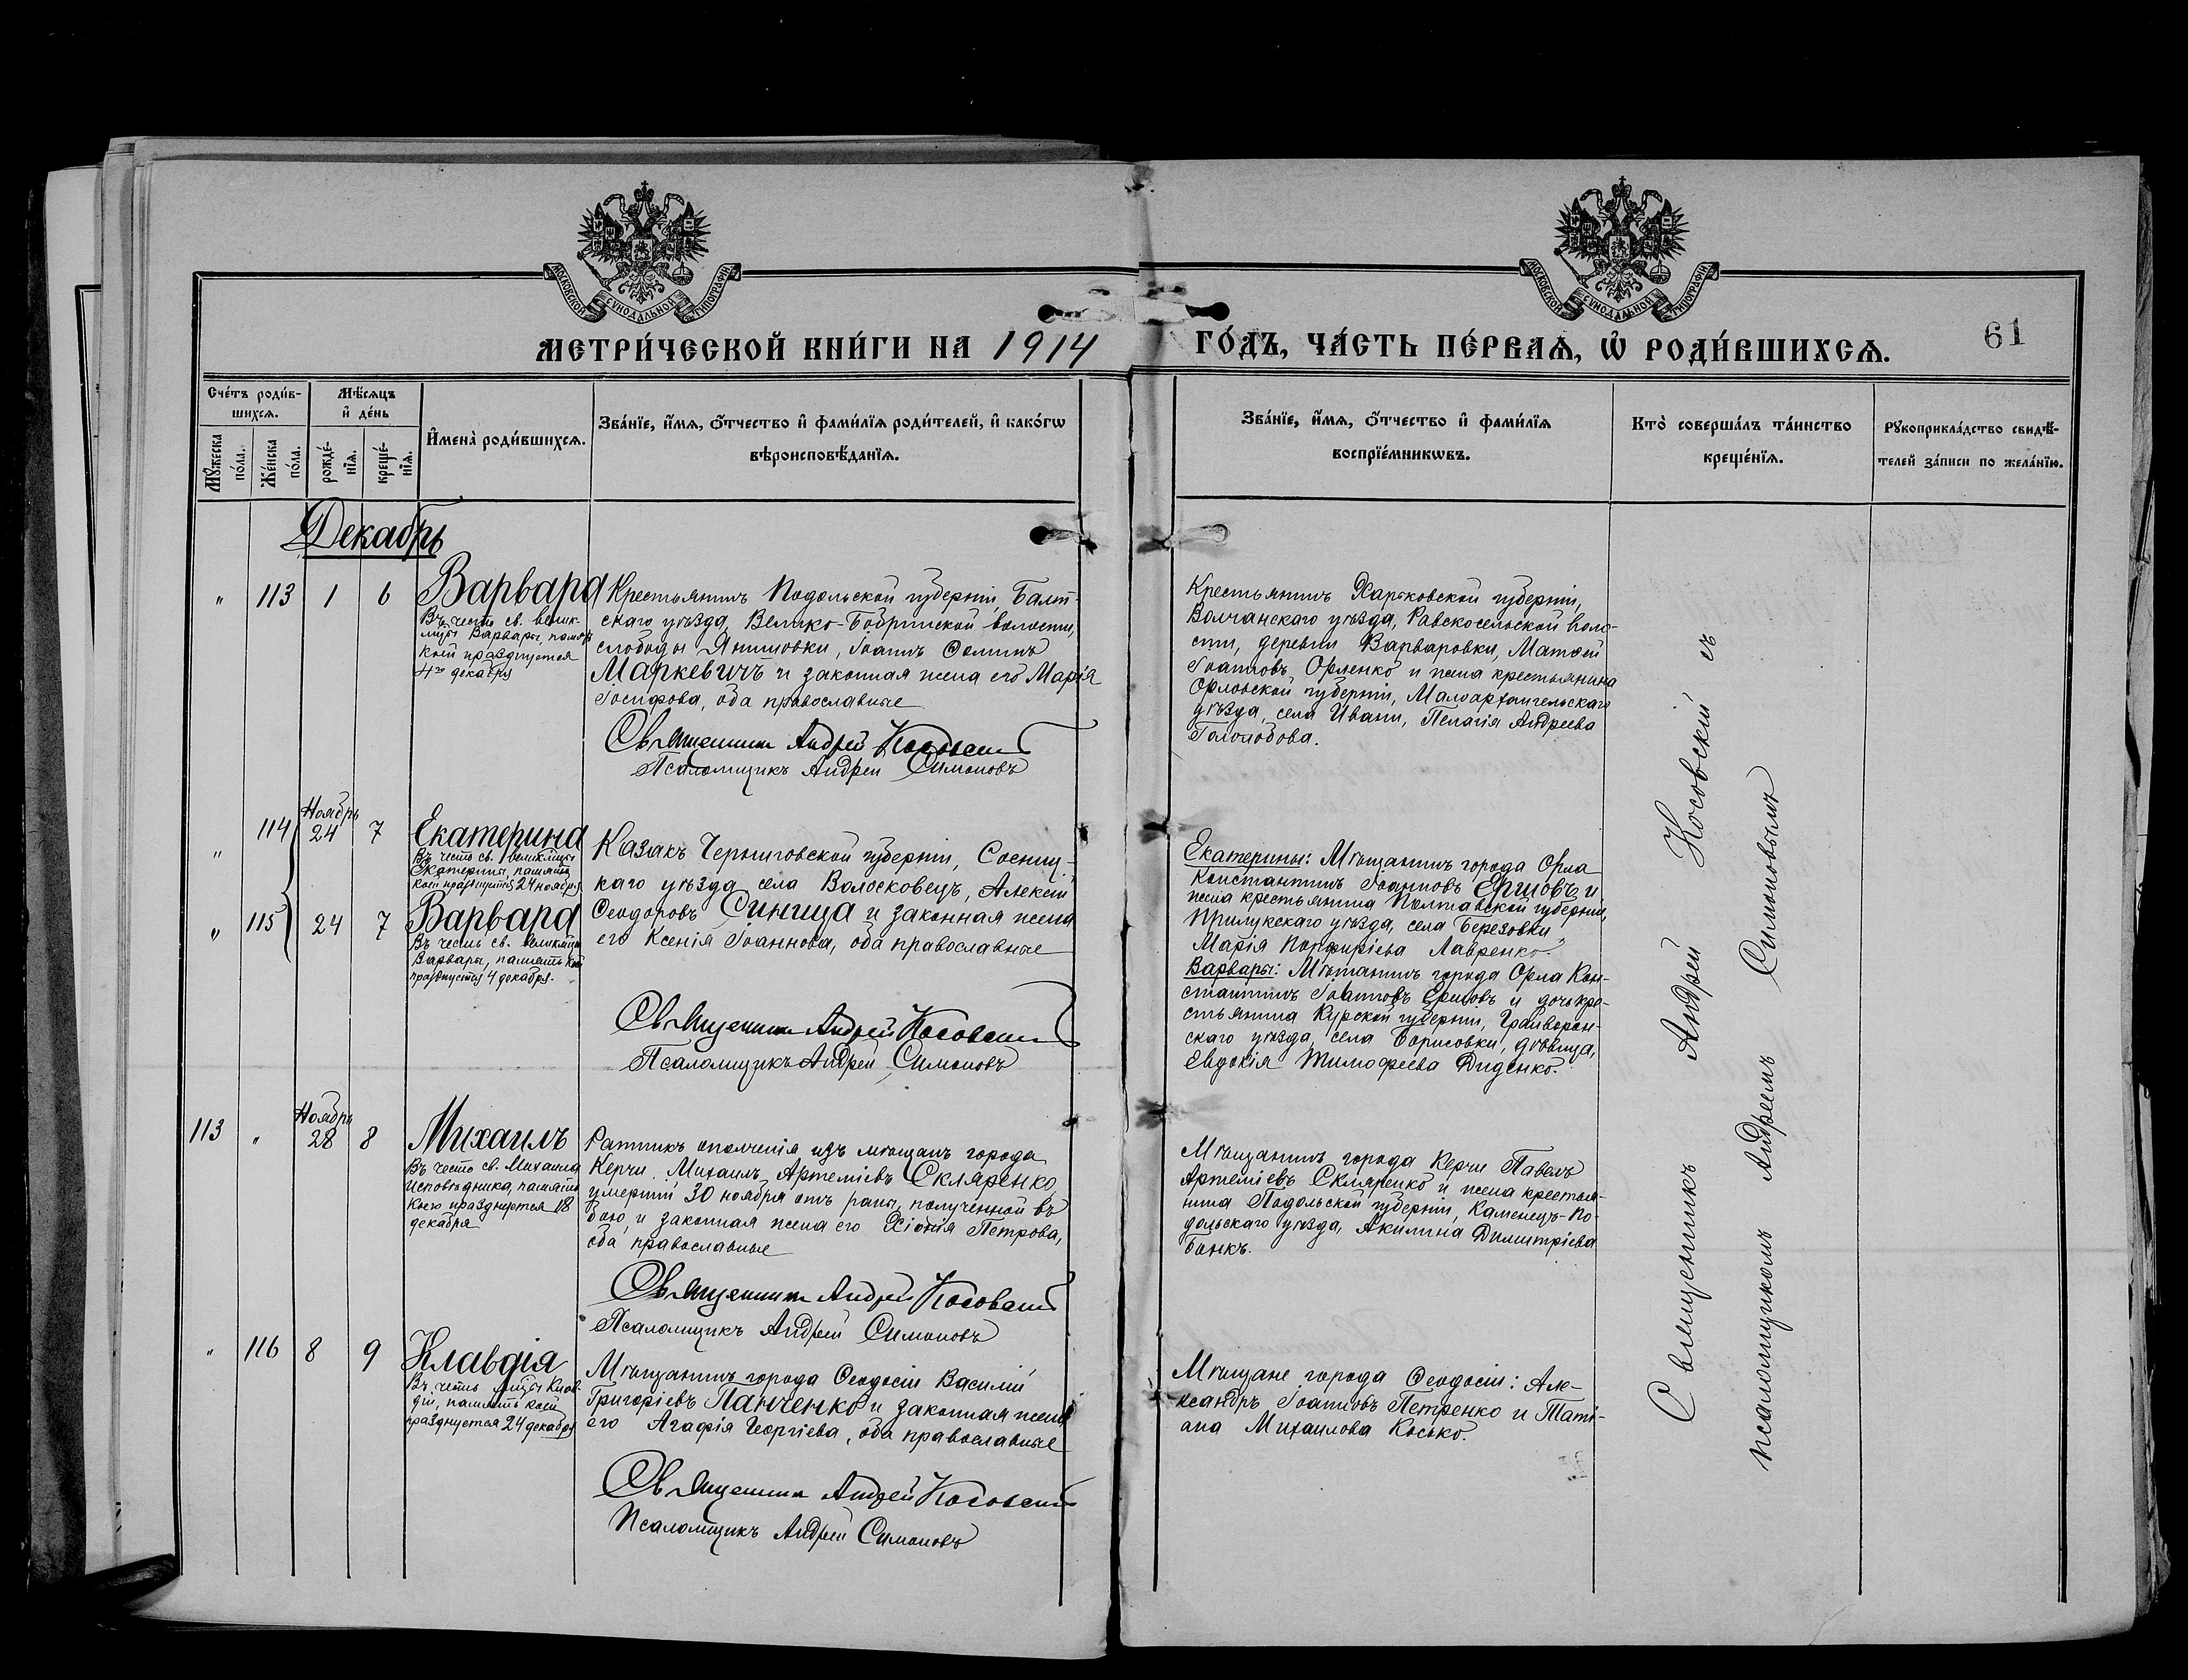 МОСКОВСКОЙ СѴНОДАЛЬНОЙ ТИПОГРАФІИ
МОСКОВСКОЙ СѴНОДАЛЬНОЙ ТИПОГРАФІИ
МЕТРИ́ЧЕСКОЙ КНИ́ГИ НА 1914
ГО́ДЪ, ЧА́СТЬ ПЕ́РВАЯ, Ѡ҆ РОДИ́ВШИХСЯ.
61
Сче́тъ роди́в-
шихся.
Мѣ́сяцъ
и҆ де́нь
Мꙋ́жеска
по́ла.
Же́нска
по́ла.
рожде́-
нїѧ.
креще́-
нїѧ.
И҆мена̀ роди́вшихся.
Зва́нїе, и҆́мѧ, ѻ҆́тчество и҆ фами́лїѧ роди́телей, и҆ како́гѡ
вѣроисповѣ́данїѧ.
Зва́нїе, и҆́мѧ, ѻ҆́тчество и҆ фами́лїѧ
воспрїе́мникѡвъ.
Кто̀ соверша́лъ та́инство
креще́нїѧ.
Рꙋкоприкла́дство свидѣ́-
телей за́писи по жела́нїю.
Декабрь
" 113 1 6 Варвара
Въ честь св. велик-
мцы Варвары, память
коей празднуется
4го декабря
Крестьянинъ Подольской губерніи, Балт-
скаго уѣзда, Велико-Бобринской волости,
слободы Яниповки, Іоаннъ Ѳоминъ
Маркевичъ и законная жена его Марія
Іосифова, оба православные
Священникъ Андрей Косовскій
Псаломщикъ Андрей Симоновъ
Крестьянинъ Харьковской губерніи,
Волчанскаго уѣзда, Равскосельской воло-
сти, деревни Варваровки, Матѳій
Іоанновъ Орленко и жена крестьянина
Орловской губерніи, Малоархангельскаго
уѣзда, села Ивани, Пелагія Андреева
Гололобова.
" 114 Ноябрь 24 7 Екатерина
Въ честь св. великмцы
Екатерины, память
коей празднуется 24 ноября
" 115 24 7 Варвара
Въ честь св. великмцы
Варвары, память коей
празднуется 4 декабря.
Казакъ Черниговской губерніи, Сосниц-
каго уѣзда села Волосковецъ, Алексій
Ѳеодоровъ Синица и законная жена
его Ксенія Іоаннова, оба православные
Священникъ Андрей Косовскій
Псаломщикъ Андрей Симоновъ
Екатерины: Мѣщанинъ города Орла
Константинъ Іоанновъ Ершовъ и
жена крестьянина Полтавской губерніи,
Прилукскаго уѣзда, села Березовки
Марія Порфиріева Лавренко.
Варвары: Мѣщанинъ города Орла Кон-
стантинъ Іоанновъ Ершовъ и дочь кре-
стьянина Курской губерніи, Грайворон-
скаго уѣзда, села Борисовки, дѣвица,
Евдокія Тимофеева Диденко.
113 " Ноябрь 28 8 Михаилъ
Въ честь св. Михаила
Исповѣдника, память
коего празднуется 18
декабря
Ратникъ ополченія изъ мѣщанъ города
Керчи Михаилъ Артеміевъ Скляренко,
умершій 30 ноября отъ раны, полученной въ
бою, и законная жена его Хіонія Петрова,
оба православные
Священникъ Андрей Косовскій
Псаломщикъ Андрей Симоновъ
Мѣщанинъ города Керчи Павелъ
Артеміевъ Скляренко и жена крестья-
нина Подольской губерніи, Каменецъ-По-
дольскаго уѣзда, Акилина Димитріева
Банкъ.
" 116 8 9 Клавдія
Въ честь мцы Клав-
діи, память коей
празднуется 24 декабря
Мѣщанинъ города Ѳеодосіи Василій
Григоріевъ Панченко и законная жена
его Агафія Георгіева, оба православные
Священникъ Андрей Косовскій
Псаломщикъ Андрей Симоновъ
Мѣщане города Ѳеодосіи: Але-
ксандръ Іоанновъ Петренко и Таті-
ана Михаилова Косько.
Священникъ Андрей Косовскій съ
псаломщикомъ Андреемъ Симоновымъ